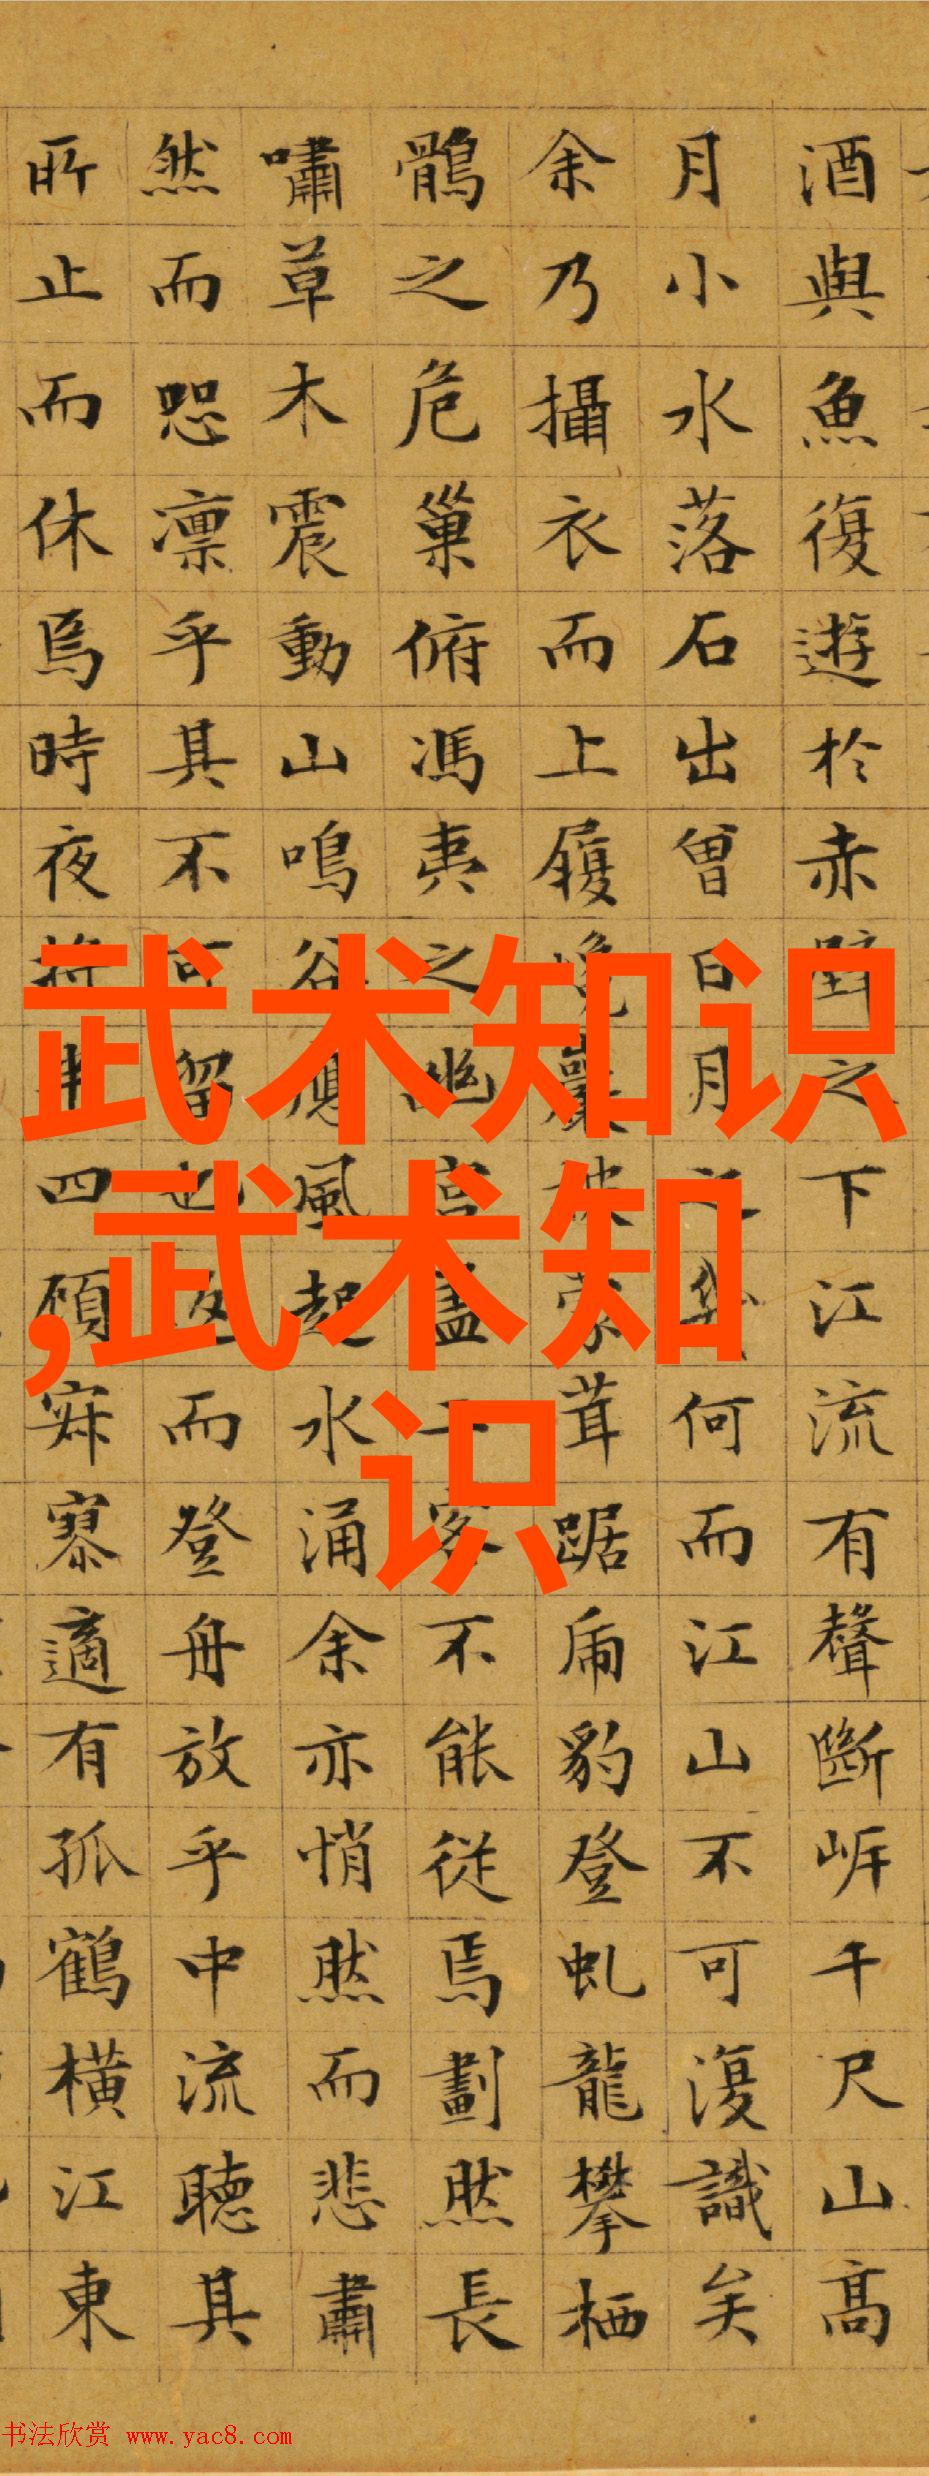 酒與魚復遊於赤壁之下江流有聲斷岸千尺山高
月小水落石出曾日月之幾何而江山不可復識矣
余乃攝衣而上履巉巖披蒙茸踞虎豹登虬龍攀栖
鶻之危巢俯馮夷之幽宮蓋二客不能從焉劃然長
嘯草木震動山鳴谷應風起水涌余亦悄然而悲肅
然而恐凛乎其不可留也返而登舟放乎中流聽其
所止而休焉時夜將半四顧寂寥適有孤鶴橫江東
武术知识
,武术知
识
书法欣赏 www.yac8.com